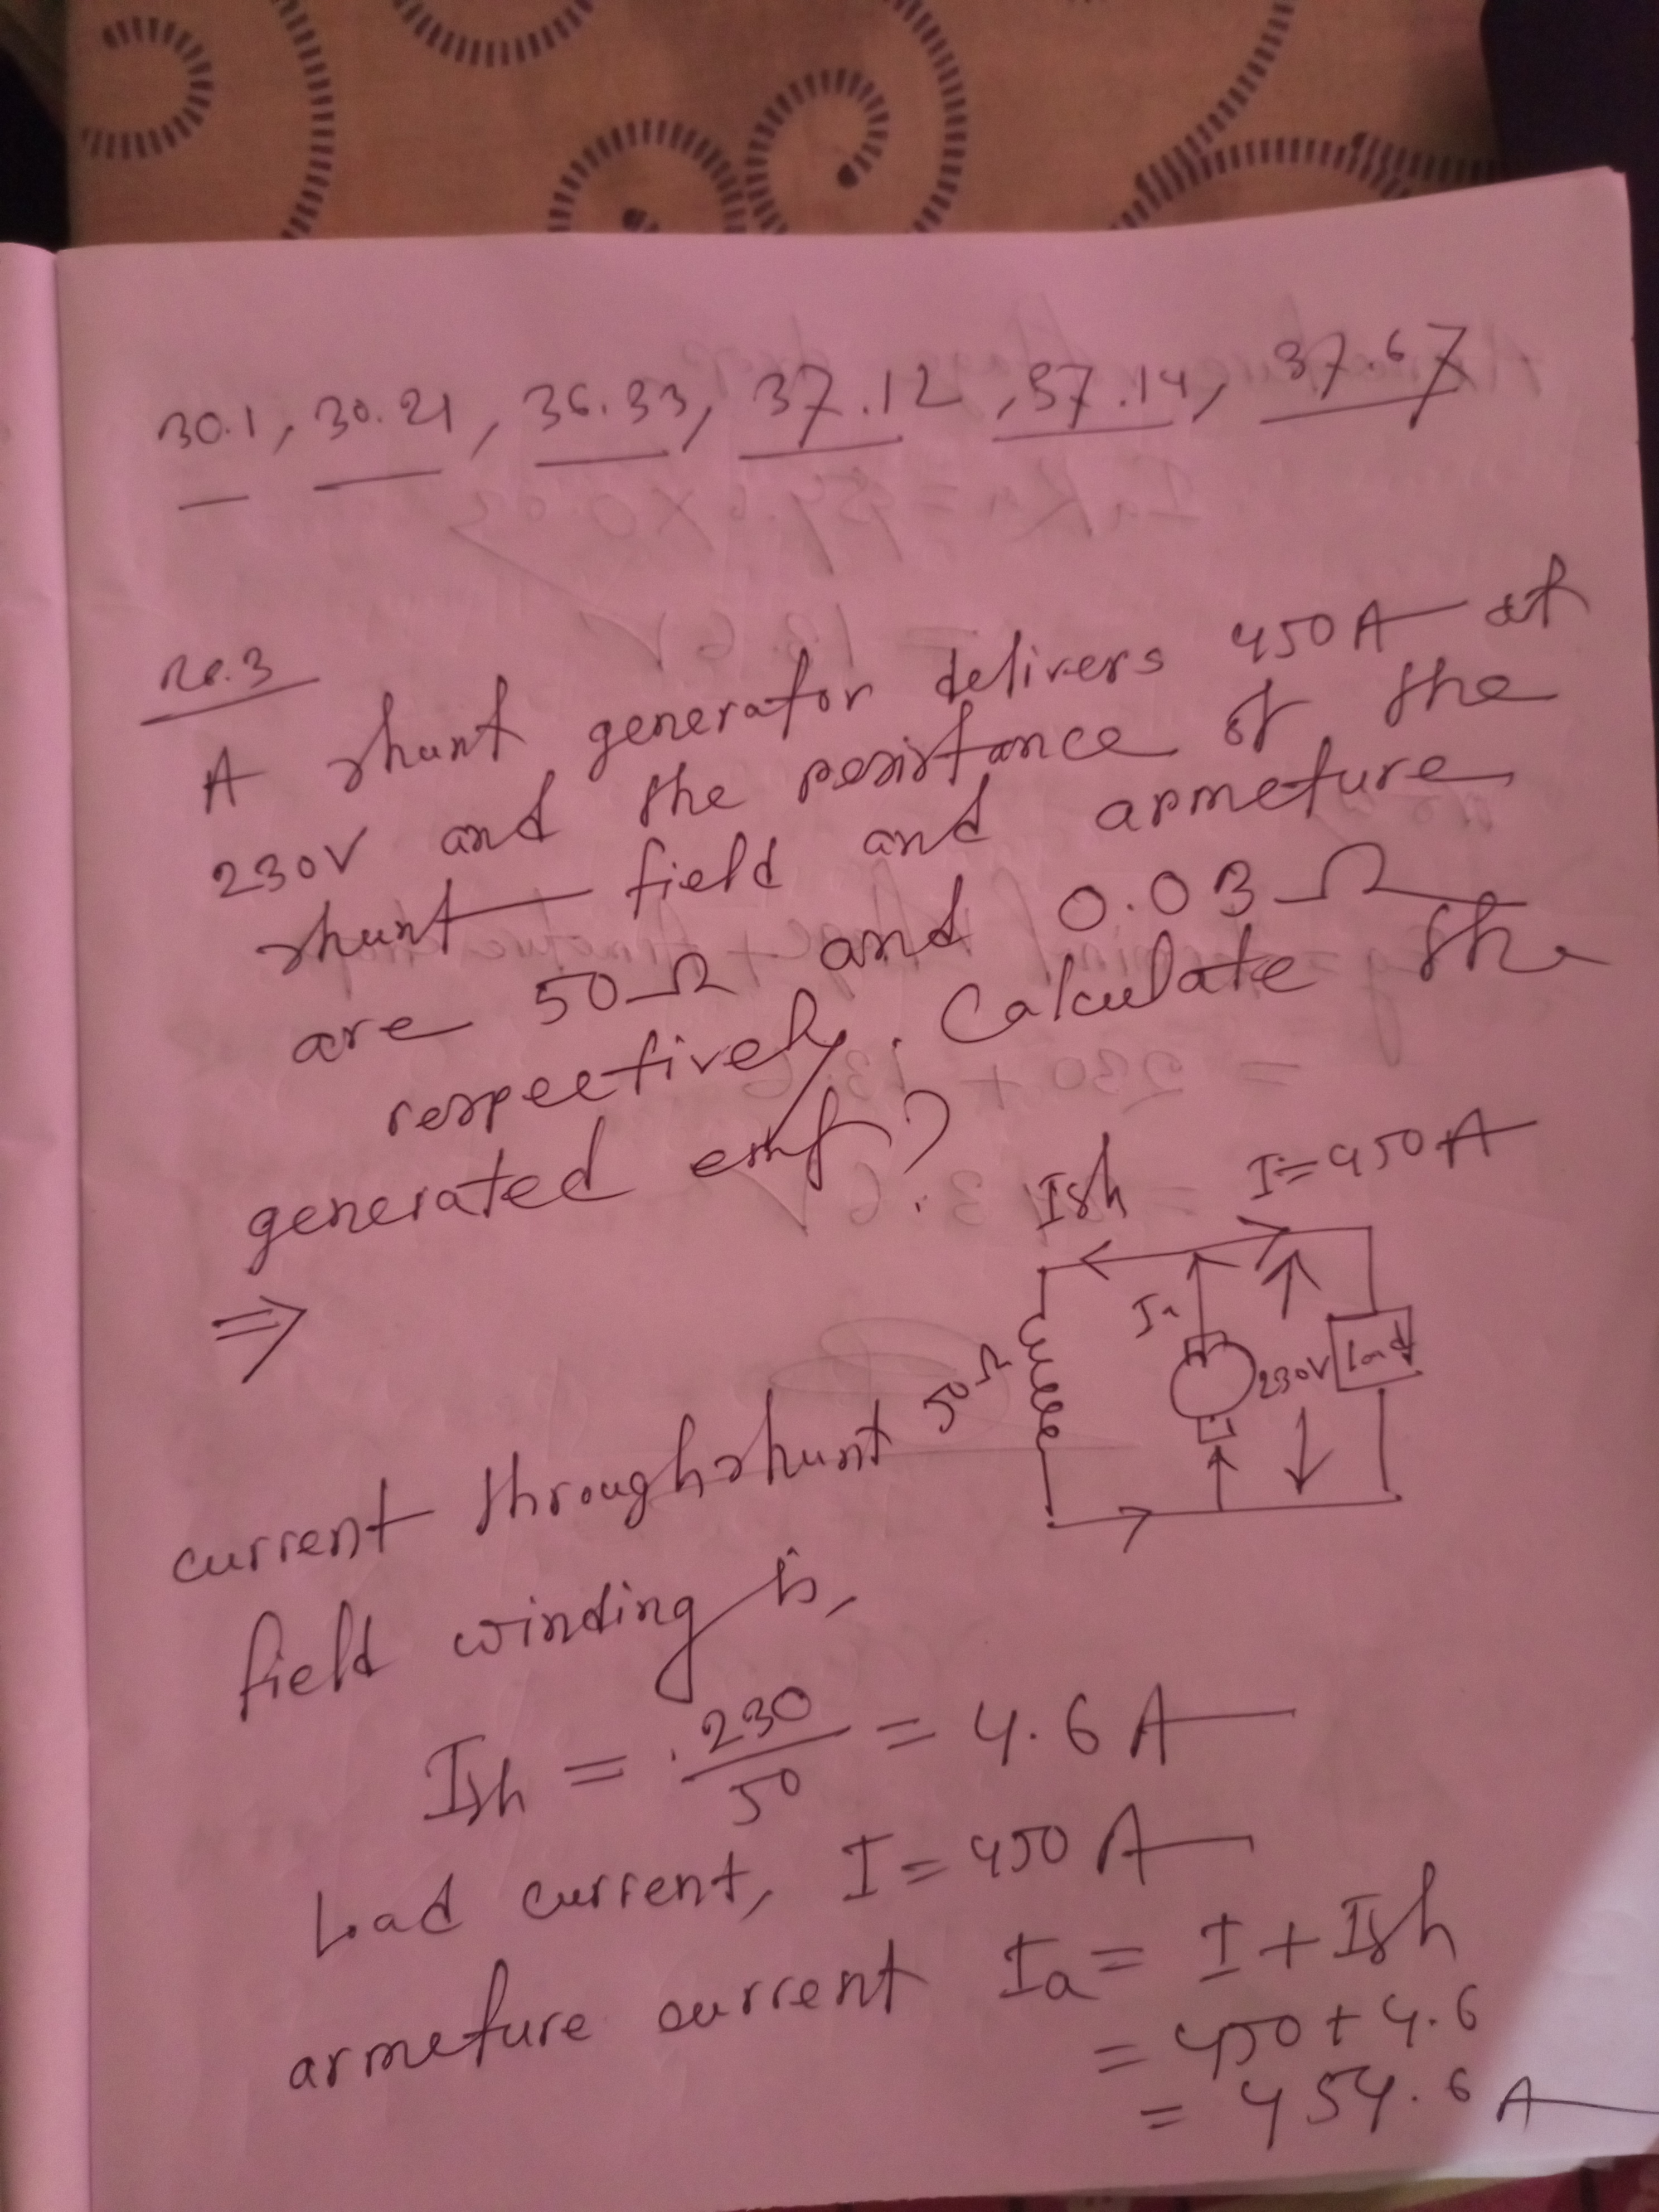 30.1, 30.21, 36.33, 37.12, 37.14, 37.67
A shunt generator delivers 450A at
230V and the resistance of the
shunt field and armeture
are 50Ω and 0.03Ω
respectively. Calculate the
generated emf?
Ish I=450A
⇒
Ia
50Ω 230V Load
current through shunt
field winding is,
Ish = 230/50 = 4.6 A
Load current, I = 450 A
armeture current Ia = I + Ish
= 450 + 4.6
= 454.6 A